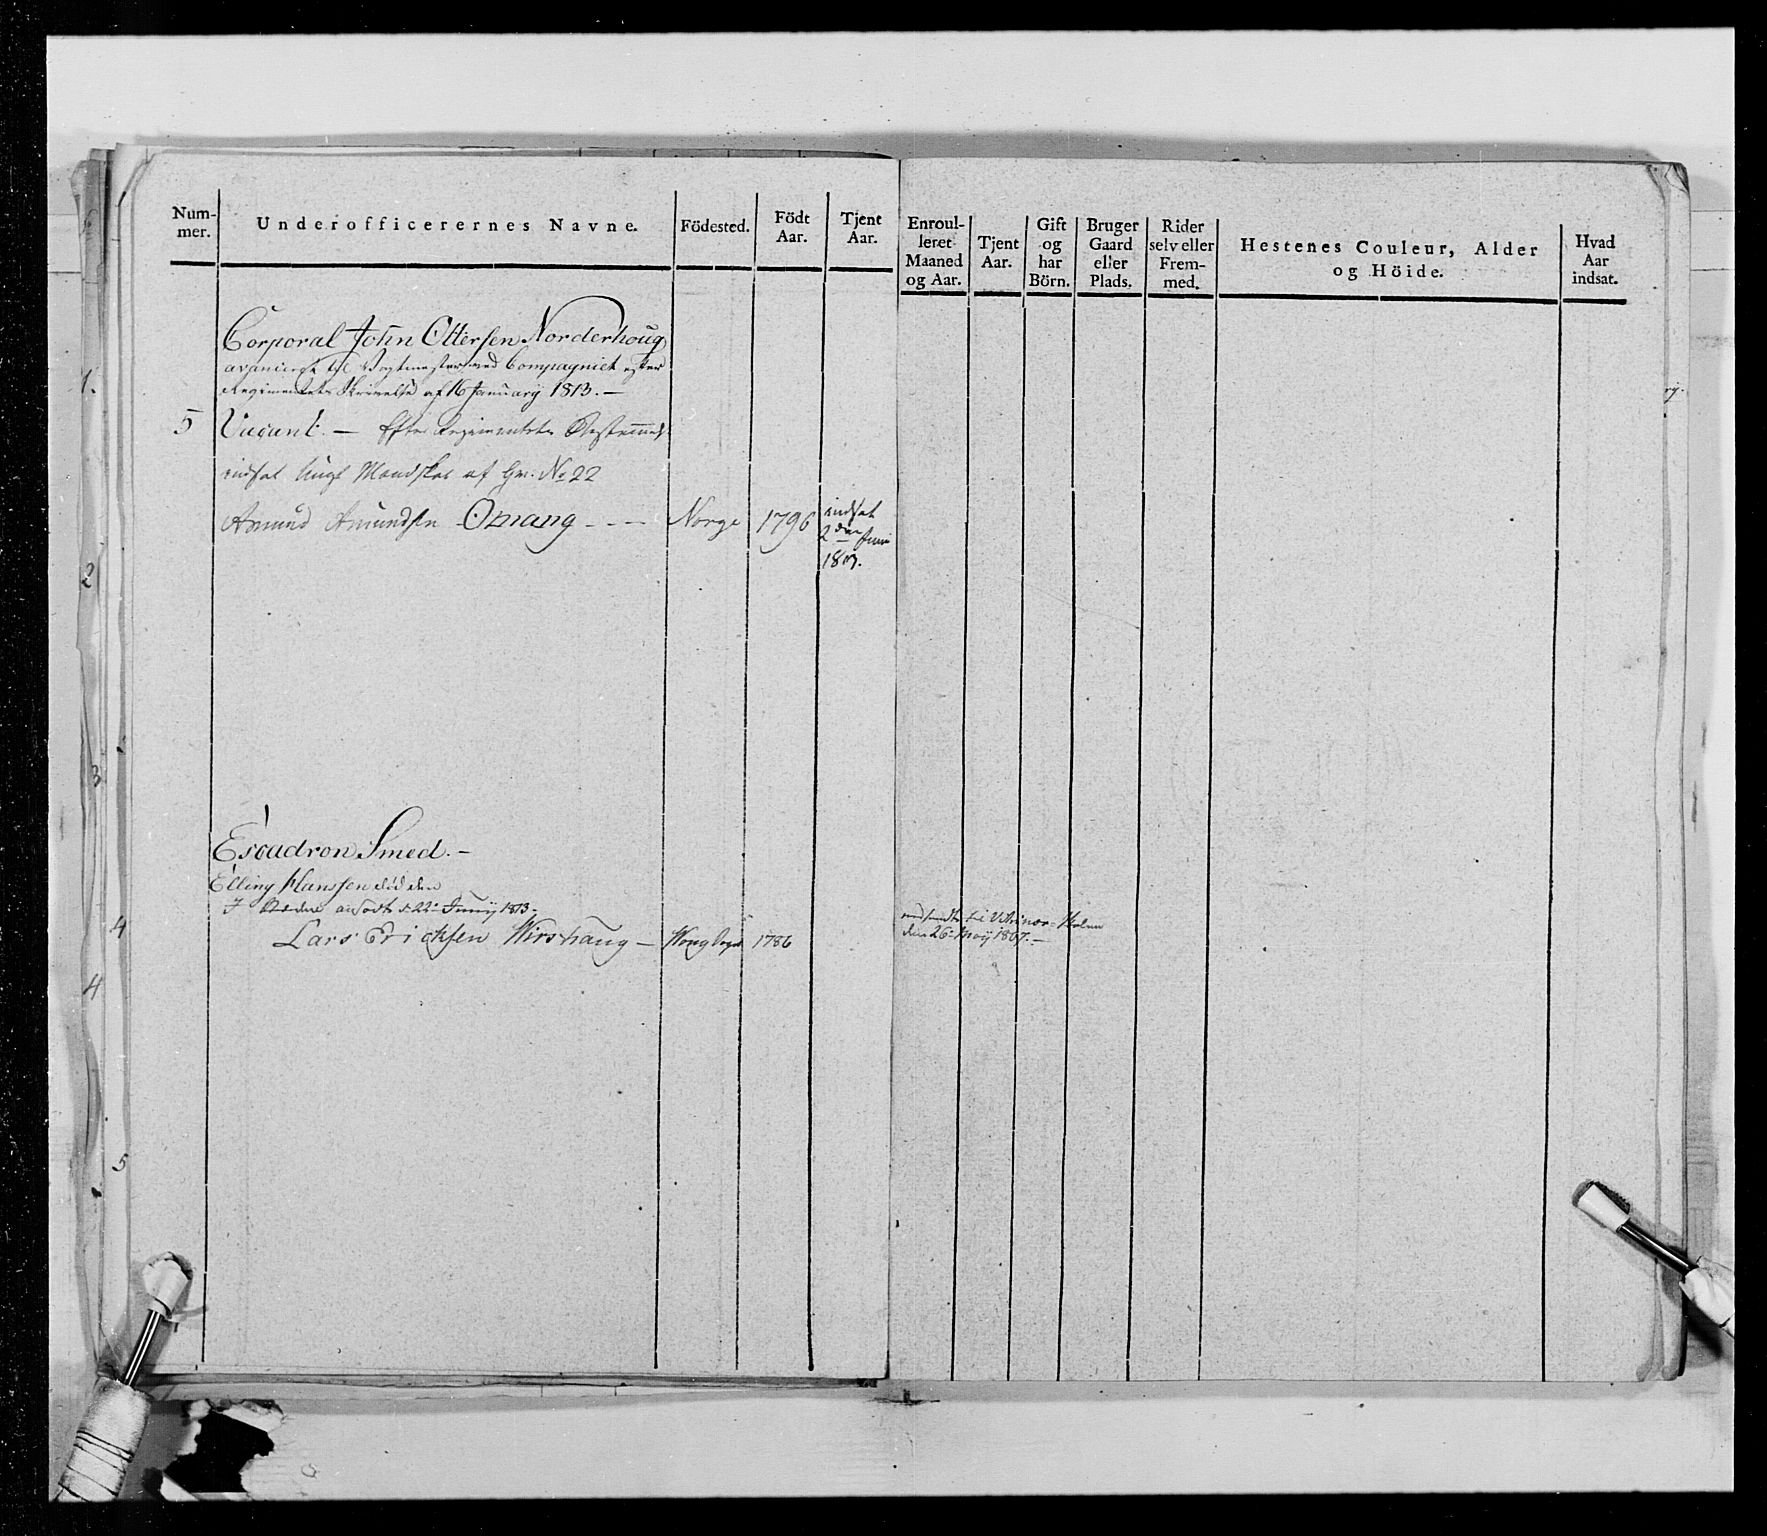 Num-
mer.
Underofficerernes Navne.
Födested.
Födt
Aar.
Tjent
Aar.
Enroul-
leret
Maaned
og Aar.
Tjent
Aar.
Gift
og
har
Börn.
Bruger
Gaard
eller
Plads.
Rider
selv eller
Frem-
med.
Hestenes Couleur, Alder
og Höide.
Hvad
Aar
indsat.
Corporal John Ottersen Norderhoug
avanceret til Vagtmester ved Compagniet efter
Regimentets Skrivelse af 16 January 1813. —
5 Vacant. — Efter Regimentets
indsat Mandskab af No 22
Amund Amundsen Omang - - - Norge 1796 indsat
2den Juni
1813.
Escadron Smed. —
Elling Hanssen död den
ansadt d. 22 Juny 1813.
Lars Ericksen Wirshaug — 1786
til
den 26 May 1807. —
1.
2
3
4
4
5